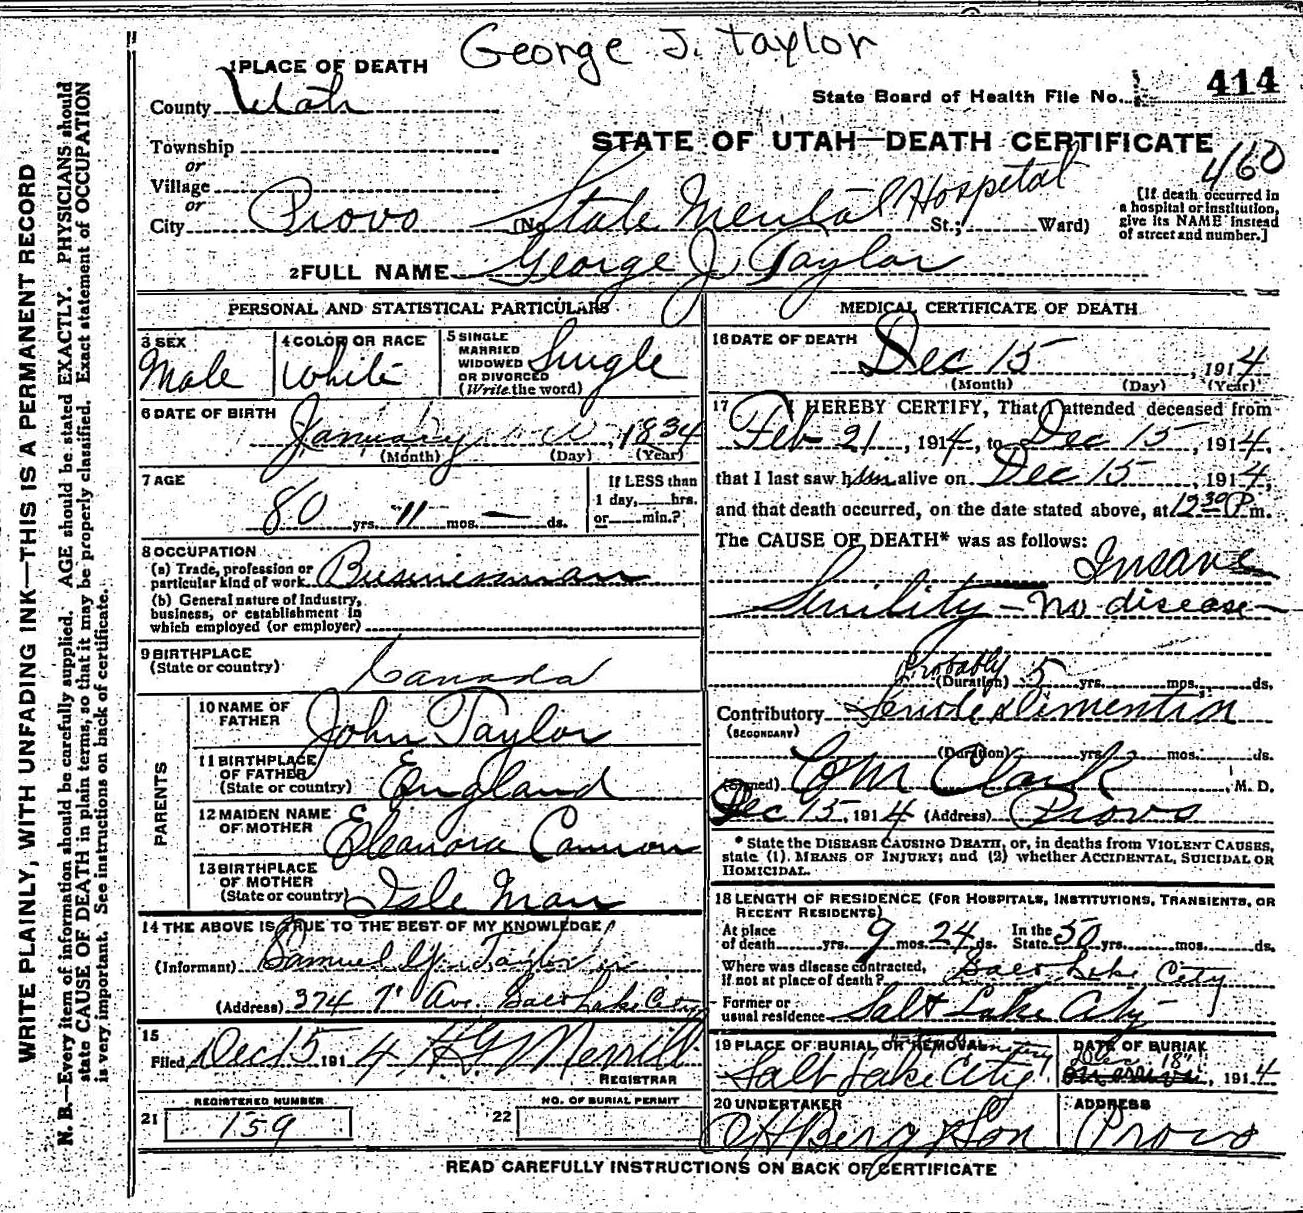 George J. Taylor
1 PLACE OF DEATH
County Utah
State Board of Health File No. 414
Township
or
Village
or
City Provo
STATE OF UTAH—DEATH CERTIFICATE
460
(No. State Mental Hospital St.; Ward)
[If death occurred in
a hospital or institution,
give its NAME instead
of street and number.]
2 FULL NAME George J. Taylor
PERSONAL AND STATISTICAL PARTICULARS
3 SEX
Male
4 COLOR OR RACE
White
5 SINGLE
MARRIED
WIDOWED
OR DIVORCED
(Write the word)
Single
6 DATE OF BIRTH
January , 1834
(Month) (Day) (Year)
7 AGE
80 yrs. 11 mos. — ds.
If LESS than
1 day, hrs.
or min.?
8 OCCUPATION
(a) Trade, profession or
particular kind of work Businessman
(b) General nature of industry,
business, or establishment in
which employed (or employer)
9 BIRTHPLACE
(State or country) Canada
PARENTS
10 NAME OF
FATHER John Taylor
11 BIRTHPLACE
OF FATHER
(State or country) England
12 MAIDEN NAME
OF MOTHER Eleanora Cannon
13 BIRTHPLACE
OF MOTHER
(State or country) Isle Man
14 THE ABOVE IS TRUE TO THE BEST OF MY KNOWLEDGE
(Informant) Samuel Taylor
(Address) 374 7" Ave. Salt Lake City
15
Filed Dec 15 1914 Merrill
REGISTRAR
REGISTERED NUMBER
21 159
NO. OF BURIAL PERMIT
22
MEDICAL CERTIFICATE OF DEATH
16 DATE OF DEATH
Dec 15 , 1914
(Month) (Day) (Year)
17 I HEREBY CERTIFY, That I attended deceased from
Feb 21 , 1914, to Dec 15 , 1914,
that I last saw him alive on Dec 15 , 1914,
and that death occurred, on the date stated above, at 12 30 P m.
The CAUSE OF DEATH* was as follows:
Insane
Senility — no disease —
Probably
(Duration) 5 yrs. mos. ds.
Contributory Senile dementia
(SECONDARY)
(Duration) yrs. mos. ds.
(Signed) Clark , M. D.
Dec 15, 1914 (Address) Provo
* State the DISEASE CAUSING DEATH, or, in deaths from VIOLENT CAUSES,
state (1). MEANS OF INJURY; and (2) whether ACCIDENTAL, SUICIDAL OR
HOMICIDAL.
18 LENGTH OF RESIDENCE (FOR HOSPITALS, INSTITUTIONS, TRANSIENTS, OR
RECENT RESIDENTS)
At place of death yrs. 9 mos. 24 ds. In the State 50 yrs. mos. ds.
Where was disease contracted,
if not at place of death? Salt Lake City
Former or
usual residence Salt Lake City
19 PLACE OF BURIAL OR REMOVAL
Salt Lake City
DATE OF BURIAL
Dec 18" , 1914
20 UNDERTAKER
Berg & Son
ADDRESS
Provo
READ CAREFULLY INSTRUCTIONS ON BACK OF CERTIFICATE
WRITE PLAINLY, WITH UNFADING INK—THIS IS A PERMANENT RECORD
N. B.—Every item of information should be carefully supplied. AGE should be stated EXACTLY. PHYSICIANS should
state CAUSE OF DEATH in plain terms, so that it may be properly classified. Exact statement of OCCUPATION
is very important. See instructions on back of certificate.